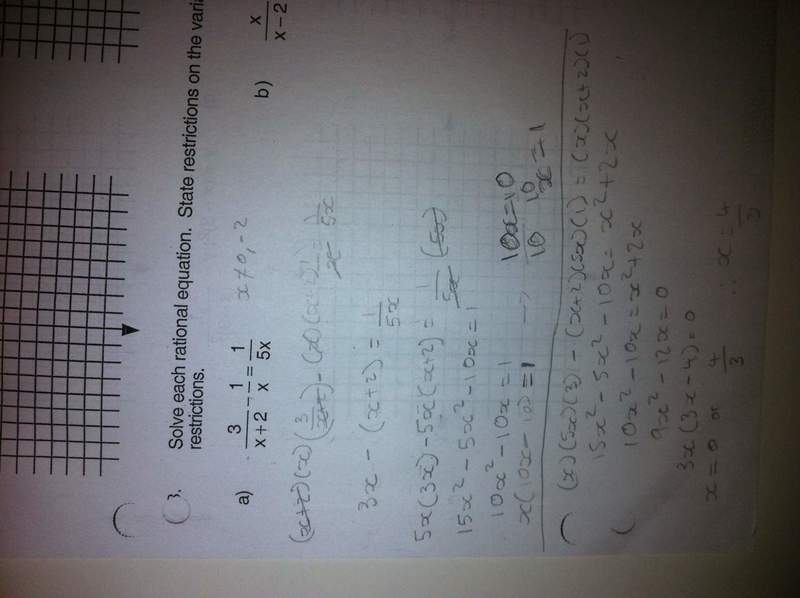 3. Solve each rational equation. State restrictions on the vari
restrictions.
a) 3/(x+2) - 1/x = 1/5x x≠0,-2
b) x/(x-2)
3x - (x+2) = 1/5x
5x(3x) - 5x(x+2) = 1/5x (5x)
15x² - 5x² - 10x = 1
10x² - 10x = 1
x(10x - 10) = 1 → 10x/10 = 10/10
x = 1
(x)(5x)(3) - (x+2)(5x)(1) = (x)(x+2)(1)
15x² - 5x² - 10x = x² + 2x
10x² - 10x = x² + 2x
9x² - 12x = 0
3x(3x - 4) = 0
x = 0 or 4/3 ∴ x = 4/3